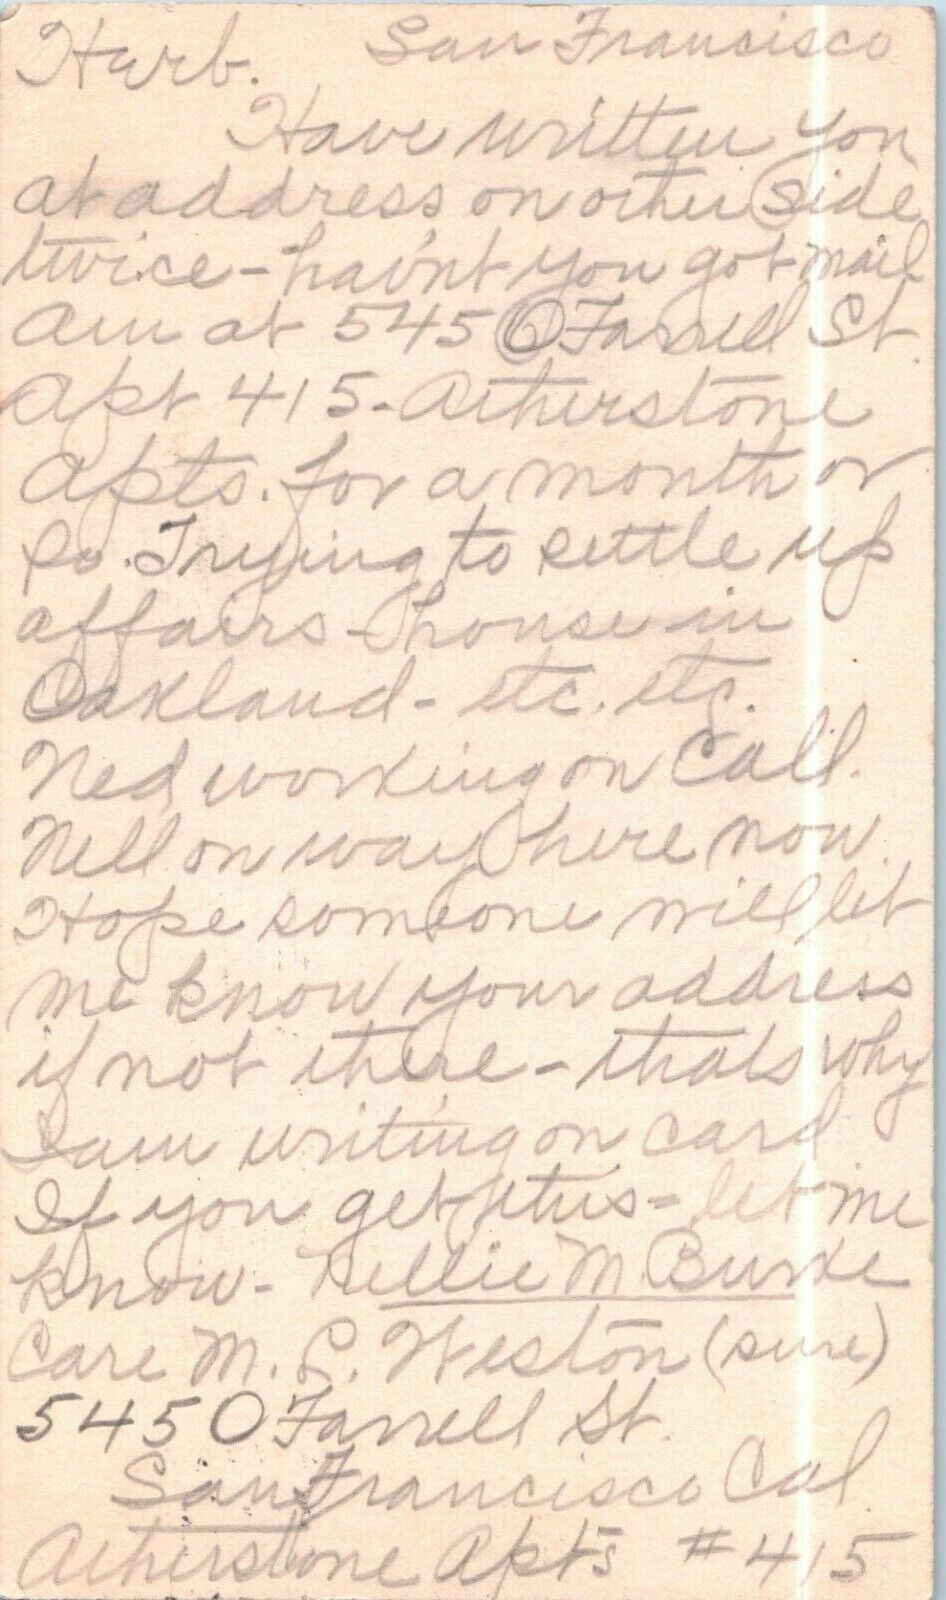 Herb. San Francisco
Have written you
at address on other side
twice - hav'nt you got mail
Am at 545 O'Farrell St.
Apt 415 - Atherstone
Apts. for a month or
so. Trying to settle up
affairs - house in
Oakland - etc. etc.
Ned working on Call.
Nell on way here now.
Hope someone will let
me know your address
if not there - thats why
I am writing on card
If you get this - let me
know - Nellie M. Burke
Care M. L. Weston (sure)
545 O Farrell St.
San Francisco Cal.
Atherstone Apts # 415